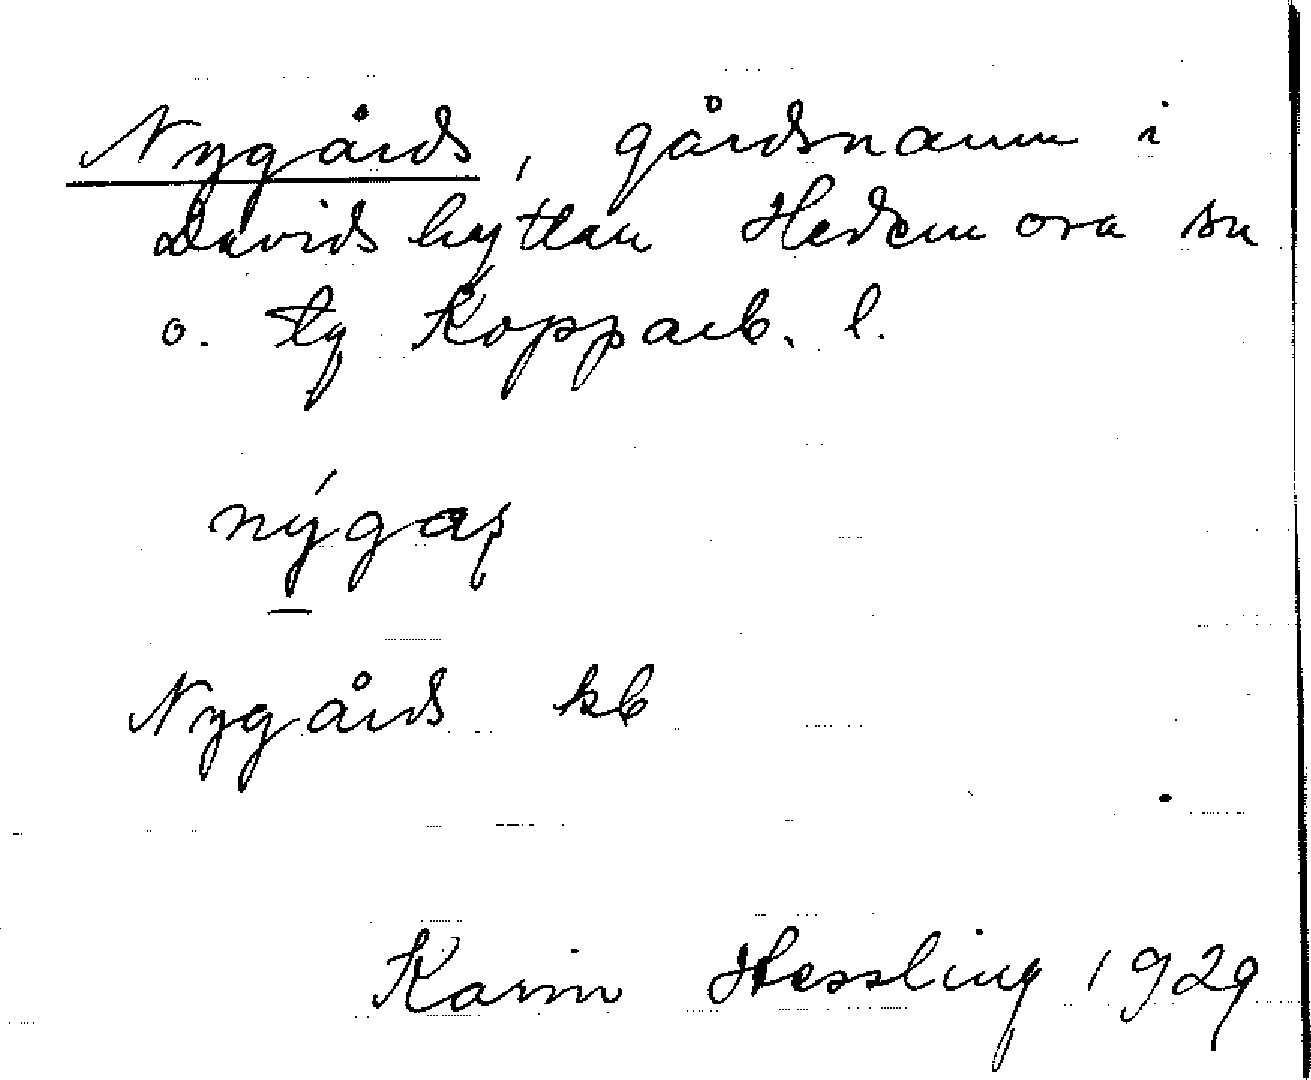 Nygårds, gårdsnamn i
Davidshyttan Hedemora sn
o. tg Kopparb. l.
nýgaʂ
Nygårds kb
Karin Hessling 1929